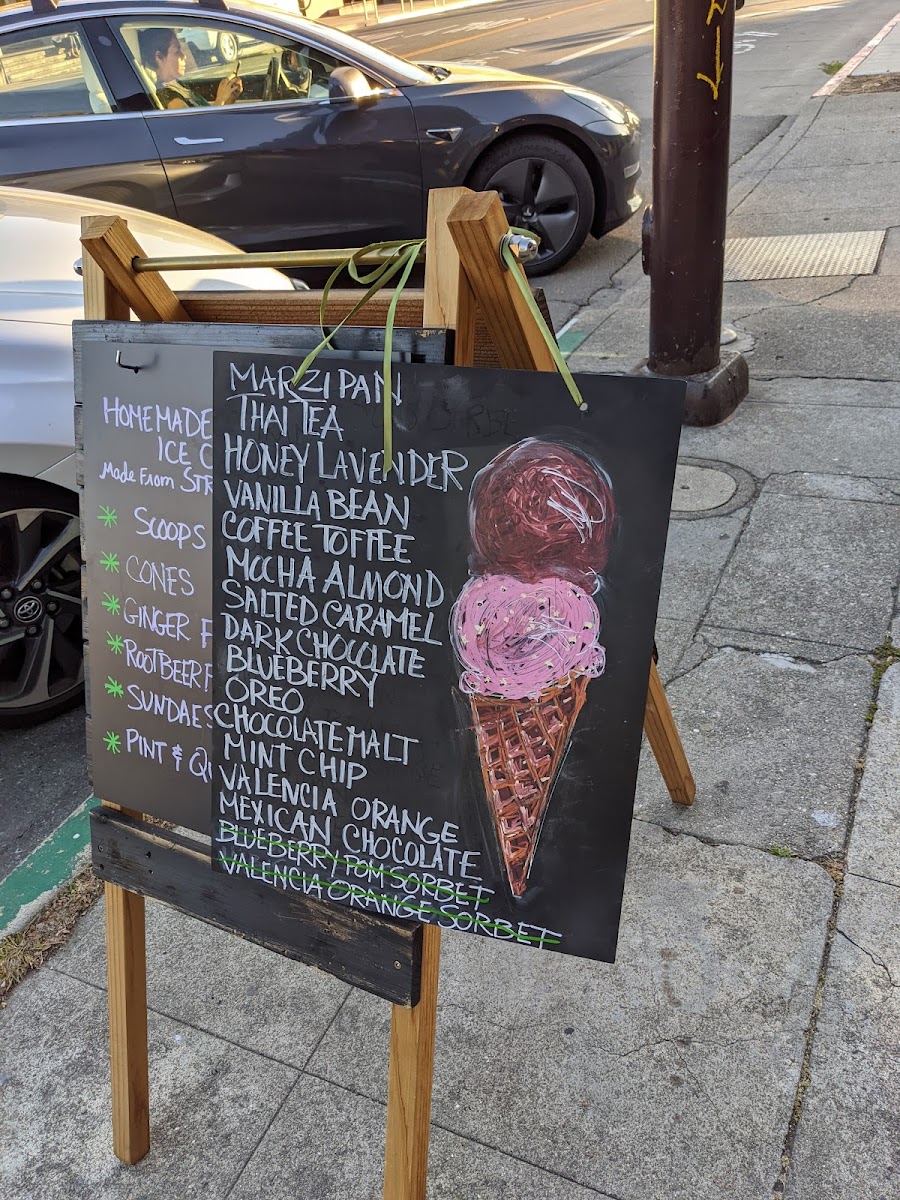 HOMEMADE
ICE
Made From
* SCOOPS
* CONES
* GINGER
* ROOTBEER
* SUNDAES
* PINT &
MARZIPAN
THAI TEA
HONEY LAVENDER
VANILLA BEAN
COFFEE TOFFEE
MOCHA ALMOND
SALTED CARAMEL
DARK CHOCOLATE
BLUEBERRY
OREO
CHOCOLATE MALT
MINT CHIP
VALENCIA ORANGE
MEXICAN CHOCOLATE
BLUEBERRY POM SORBET
VALENCIA ORANGE SORBET